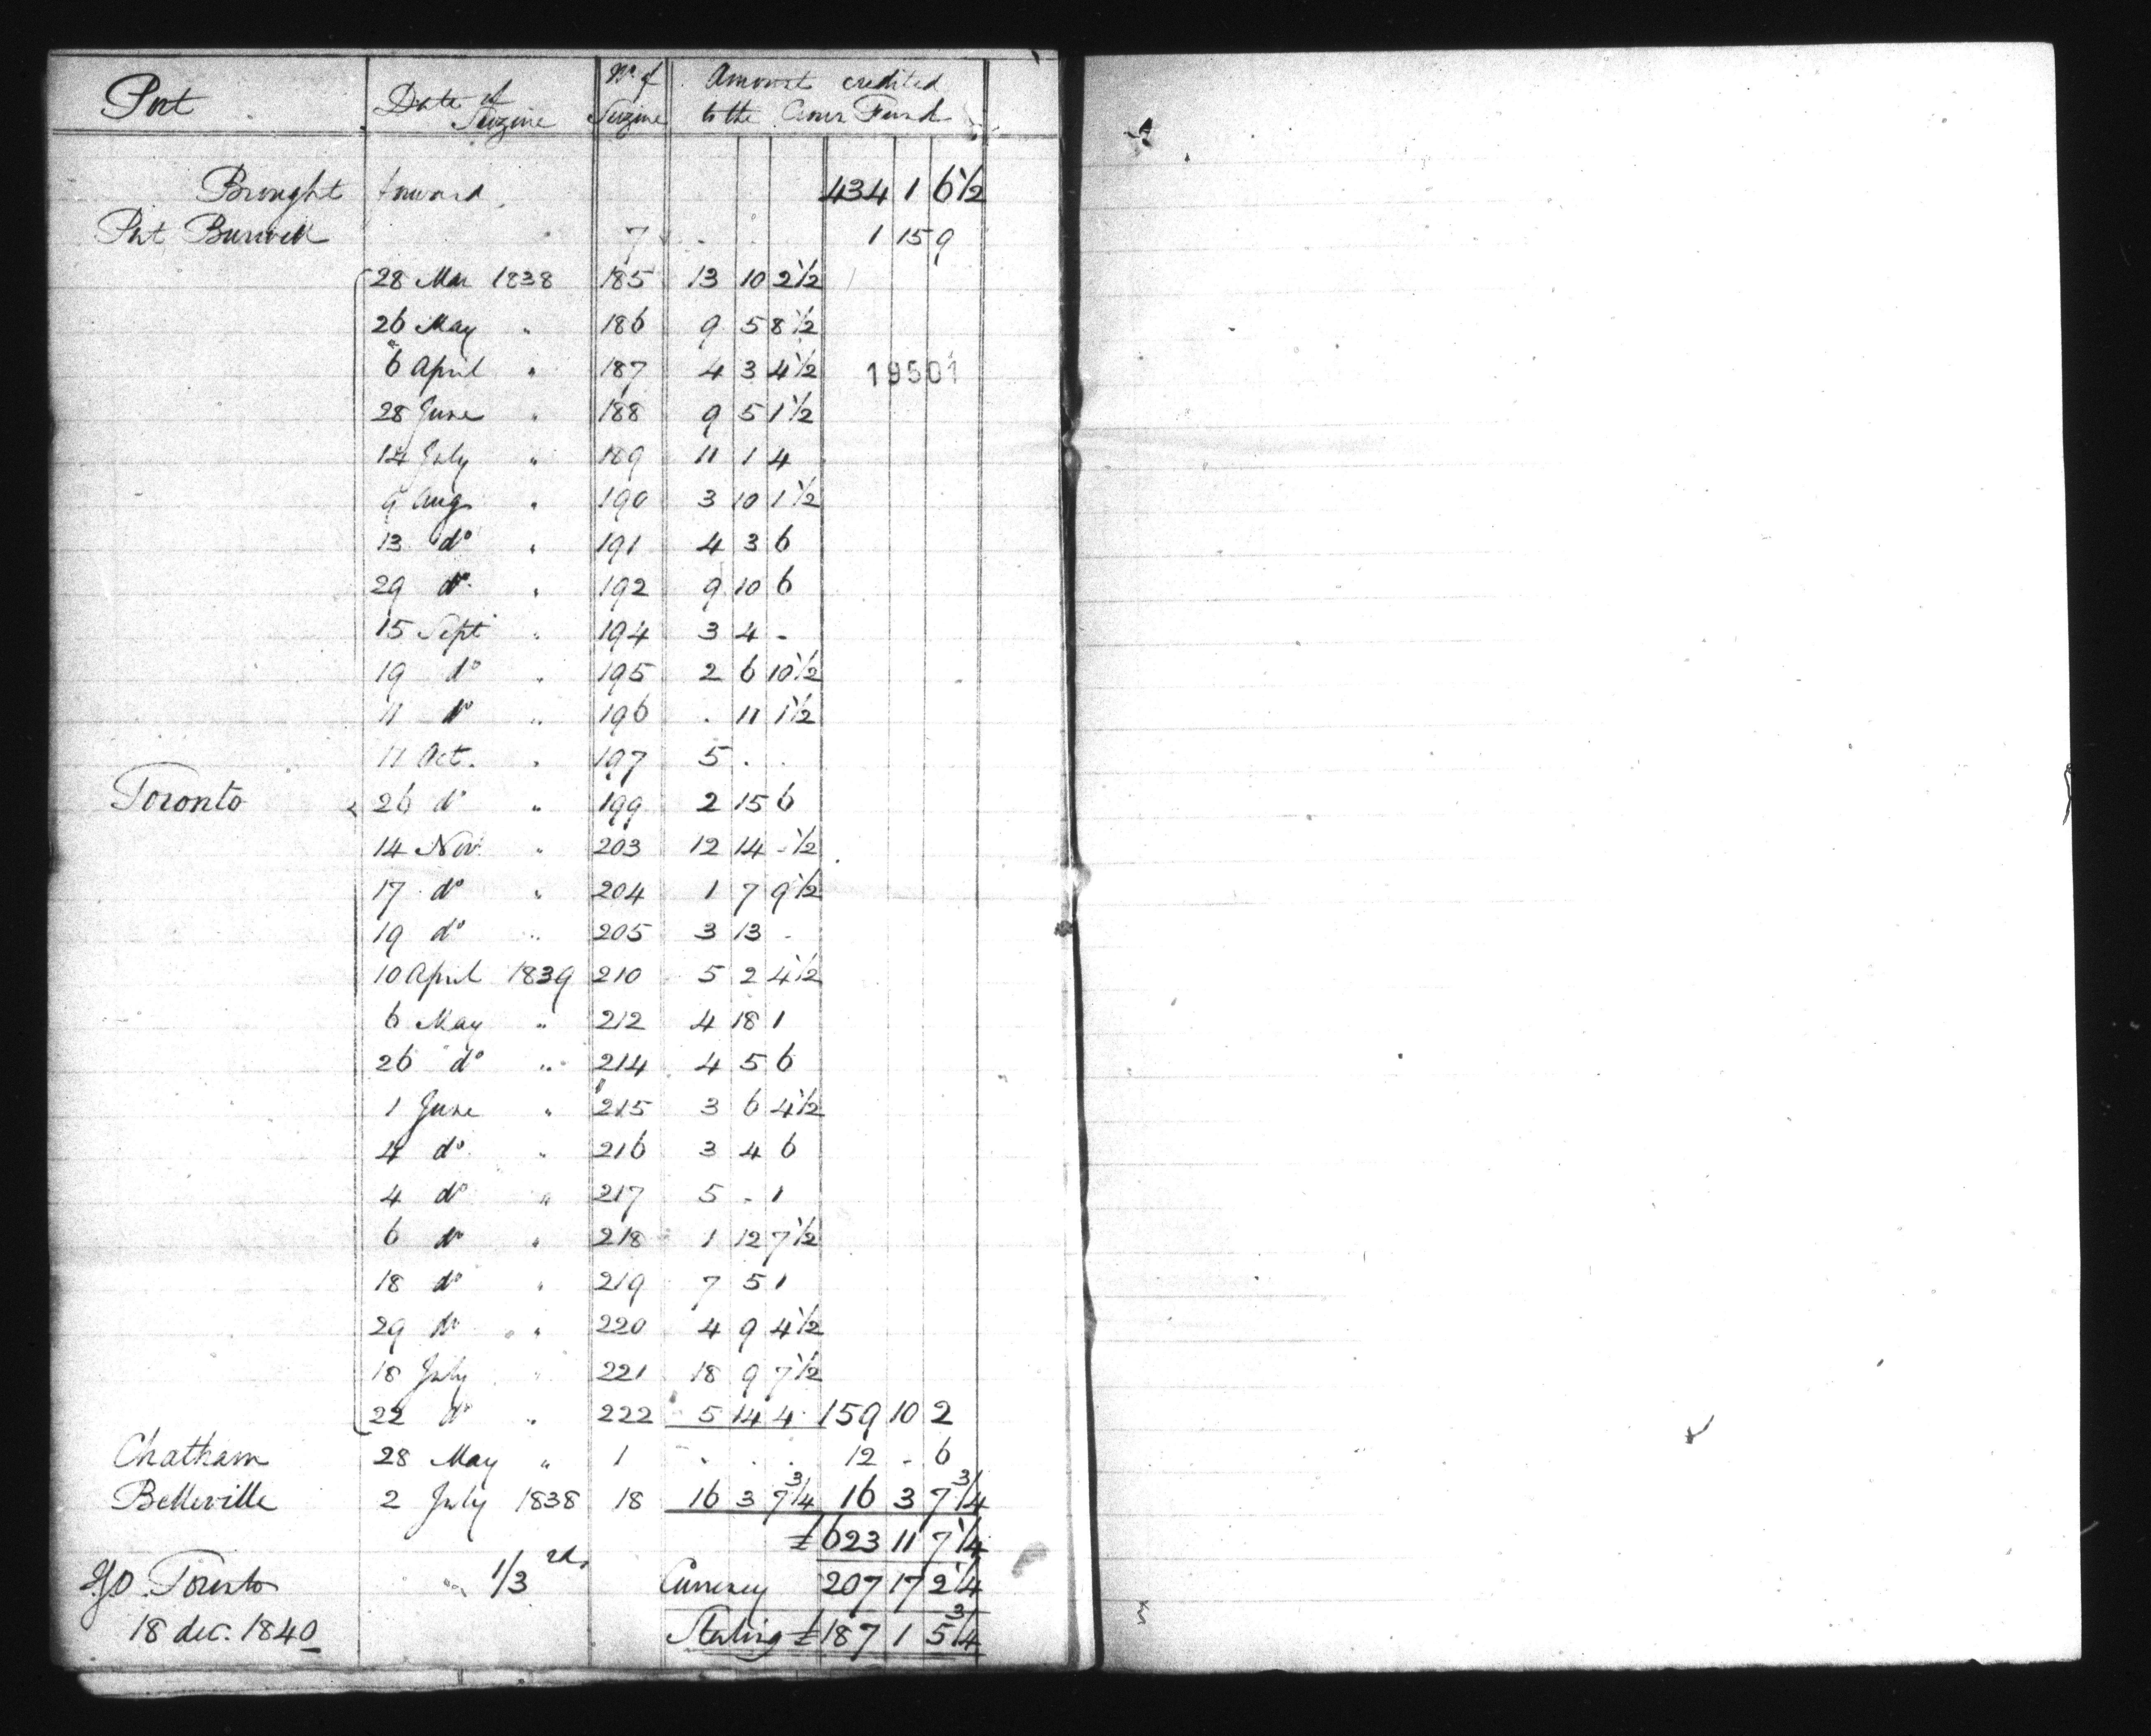 Port Date of Seizure No. of Seizure Amount credited to the Crown Fund
Brought forward 434 1 6 1/2
Port Burwell " 7 . . . 1 15 9
28 Mar 1838 185 13 10 2 1/2
26 May " 186 9 5 8 1/2
6 April " 187 4 3 4 1/2 19501
28 June " 188 9 5 1 1/2
14 July " 189 11 1 4
9 Aug " 190 3 10 1 1/2
13 do " 191 4 3 6
29 do " 192 9 10 6
15 Sept " 194 3 4 -
19 do " 195 2 6 10 1/2
11 do " 196 . 11 1 1/2
11 Oct. " 197 5 . .
Toronto 26 do " 199 2 15 6
14 Nov. " 203 12 14 - 1/2
17 do " 204 1 7 9 1/2
19 do " 205 3 13 -
10 April 1839 210 5 2 4 1/2
6 May " 212 4 18 1
26 do " 214 4 5 6
1 June " 215 3 6 4 1/2
4 do " 216 3 4 6
4 do " 217 5 - 1
6 do " 218 1 12 7 1/2
18 do " 219 7 5 1
29 do " 220 4 9 4 1/2
18 July " 221 18 9 7 1/2
22 do " 222 5 14 4 159 10 2
Chatham 28 May " 1 . . . 12 - 6
Belleville 2 July 1838 18 16 3 7 3/4 16 3 7 3/4
£ 623 11 7 1/4
Toronto 1/3 rd. Currency 207 17 2 1/4
18 dec. 1840 Sterling £ 187 1 5 3/4